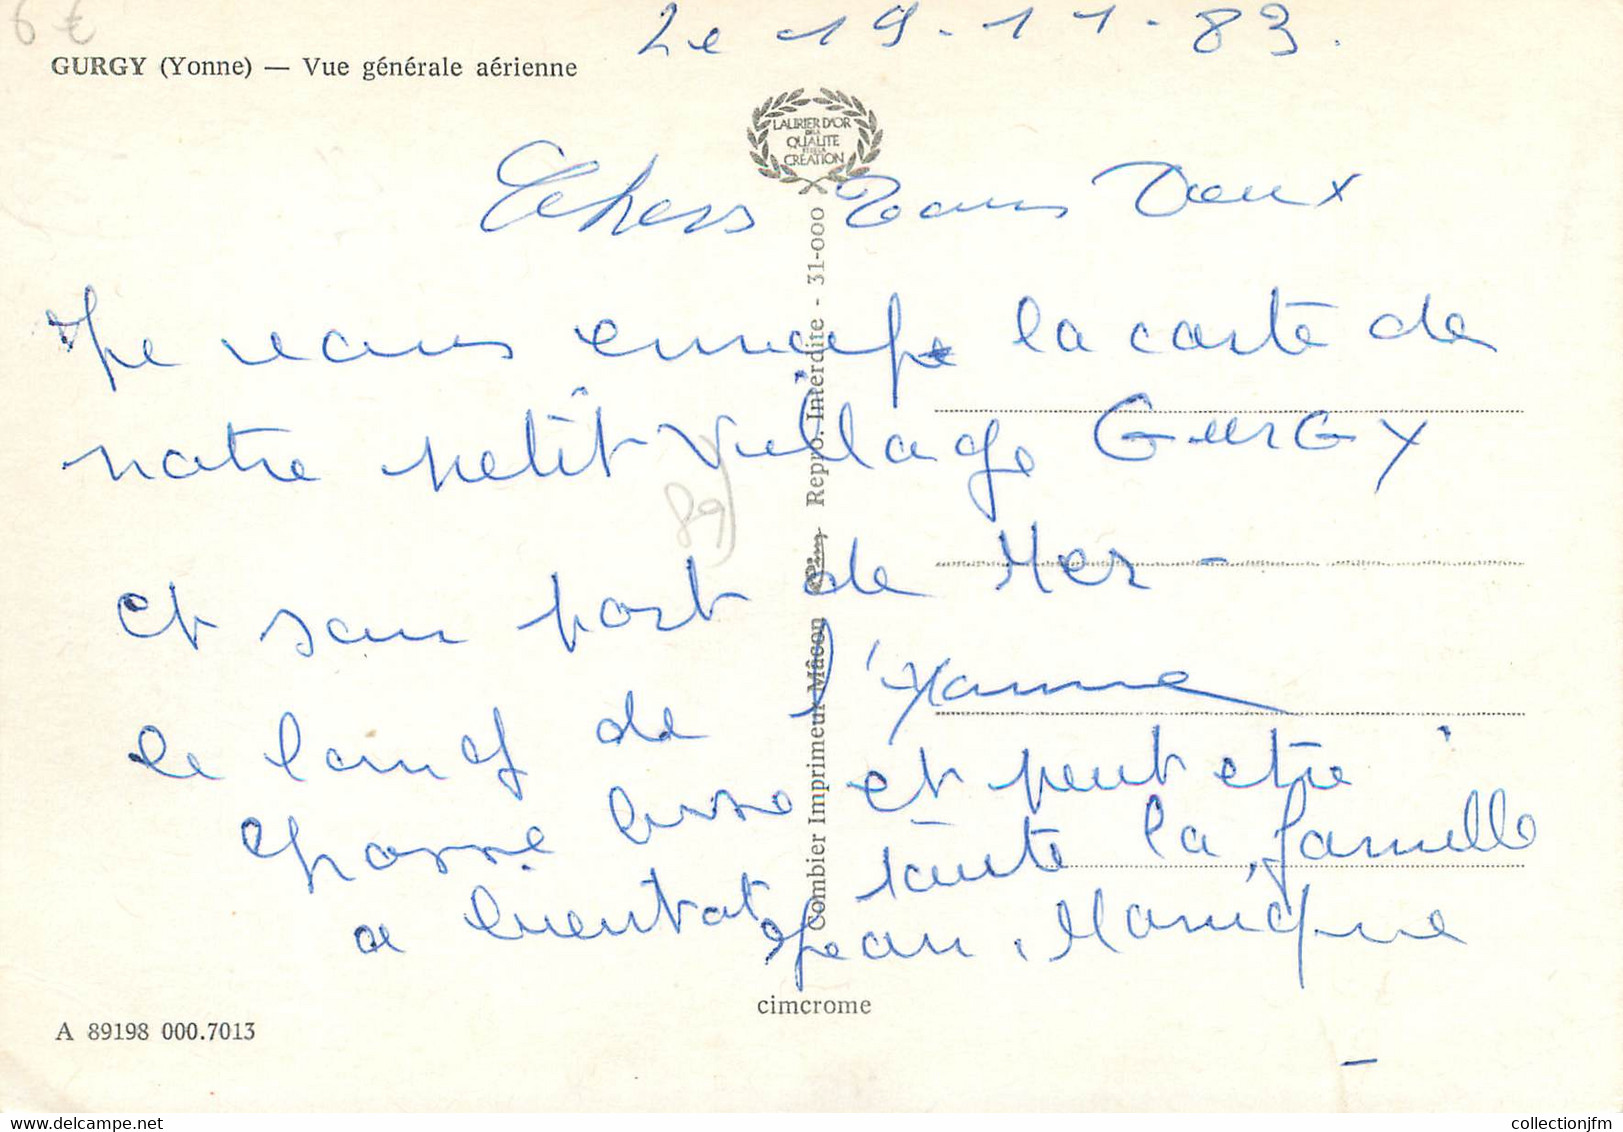 6 €
Le 19-11-83.
GURGY (Yonne) — Vue générale aérienne
LAURIER D'OR
DE LA
QUALITE
ET DE LA
CREATION
Chers Tous Deux
Je vous envoie la carte de
notre petit Village GURGY
89
et son port de Mer -
le long de l'Yonne
grosse bise et peut etre
a bientot toute la famille
Jean, Monique
Combier Imprimeur Mâcon Repro. Interdite - 31-000
cimcrome
A 89198 000.7013
collectionjfm